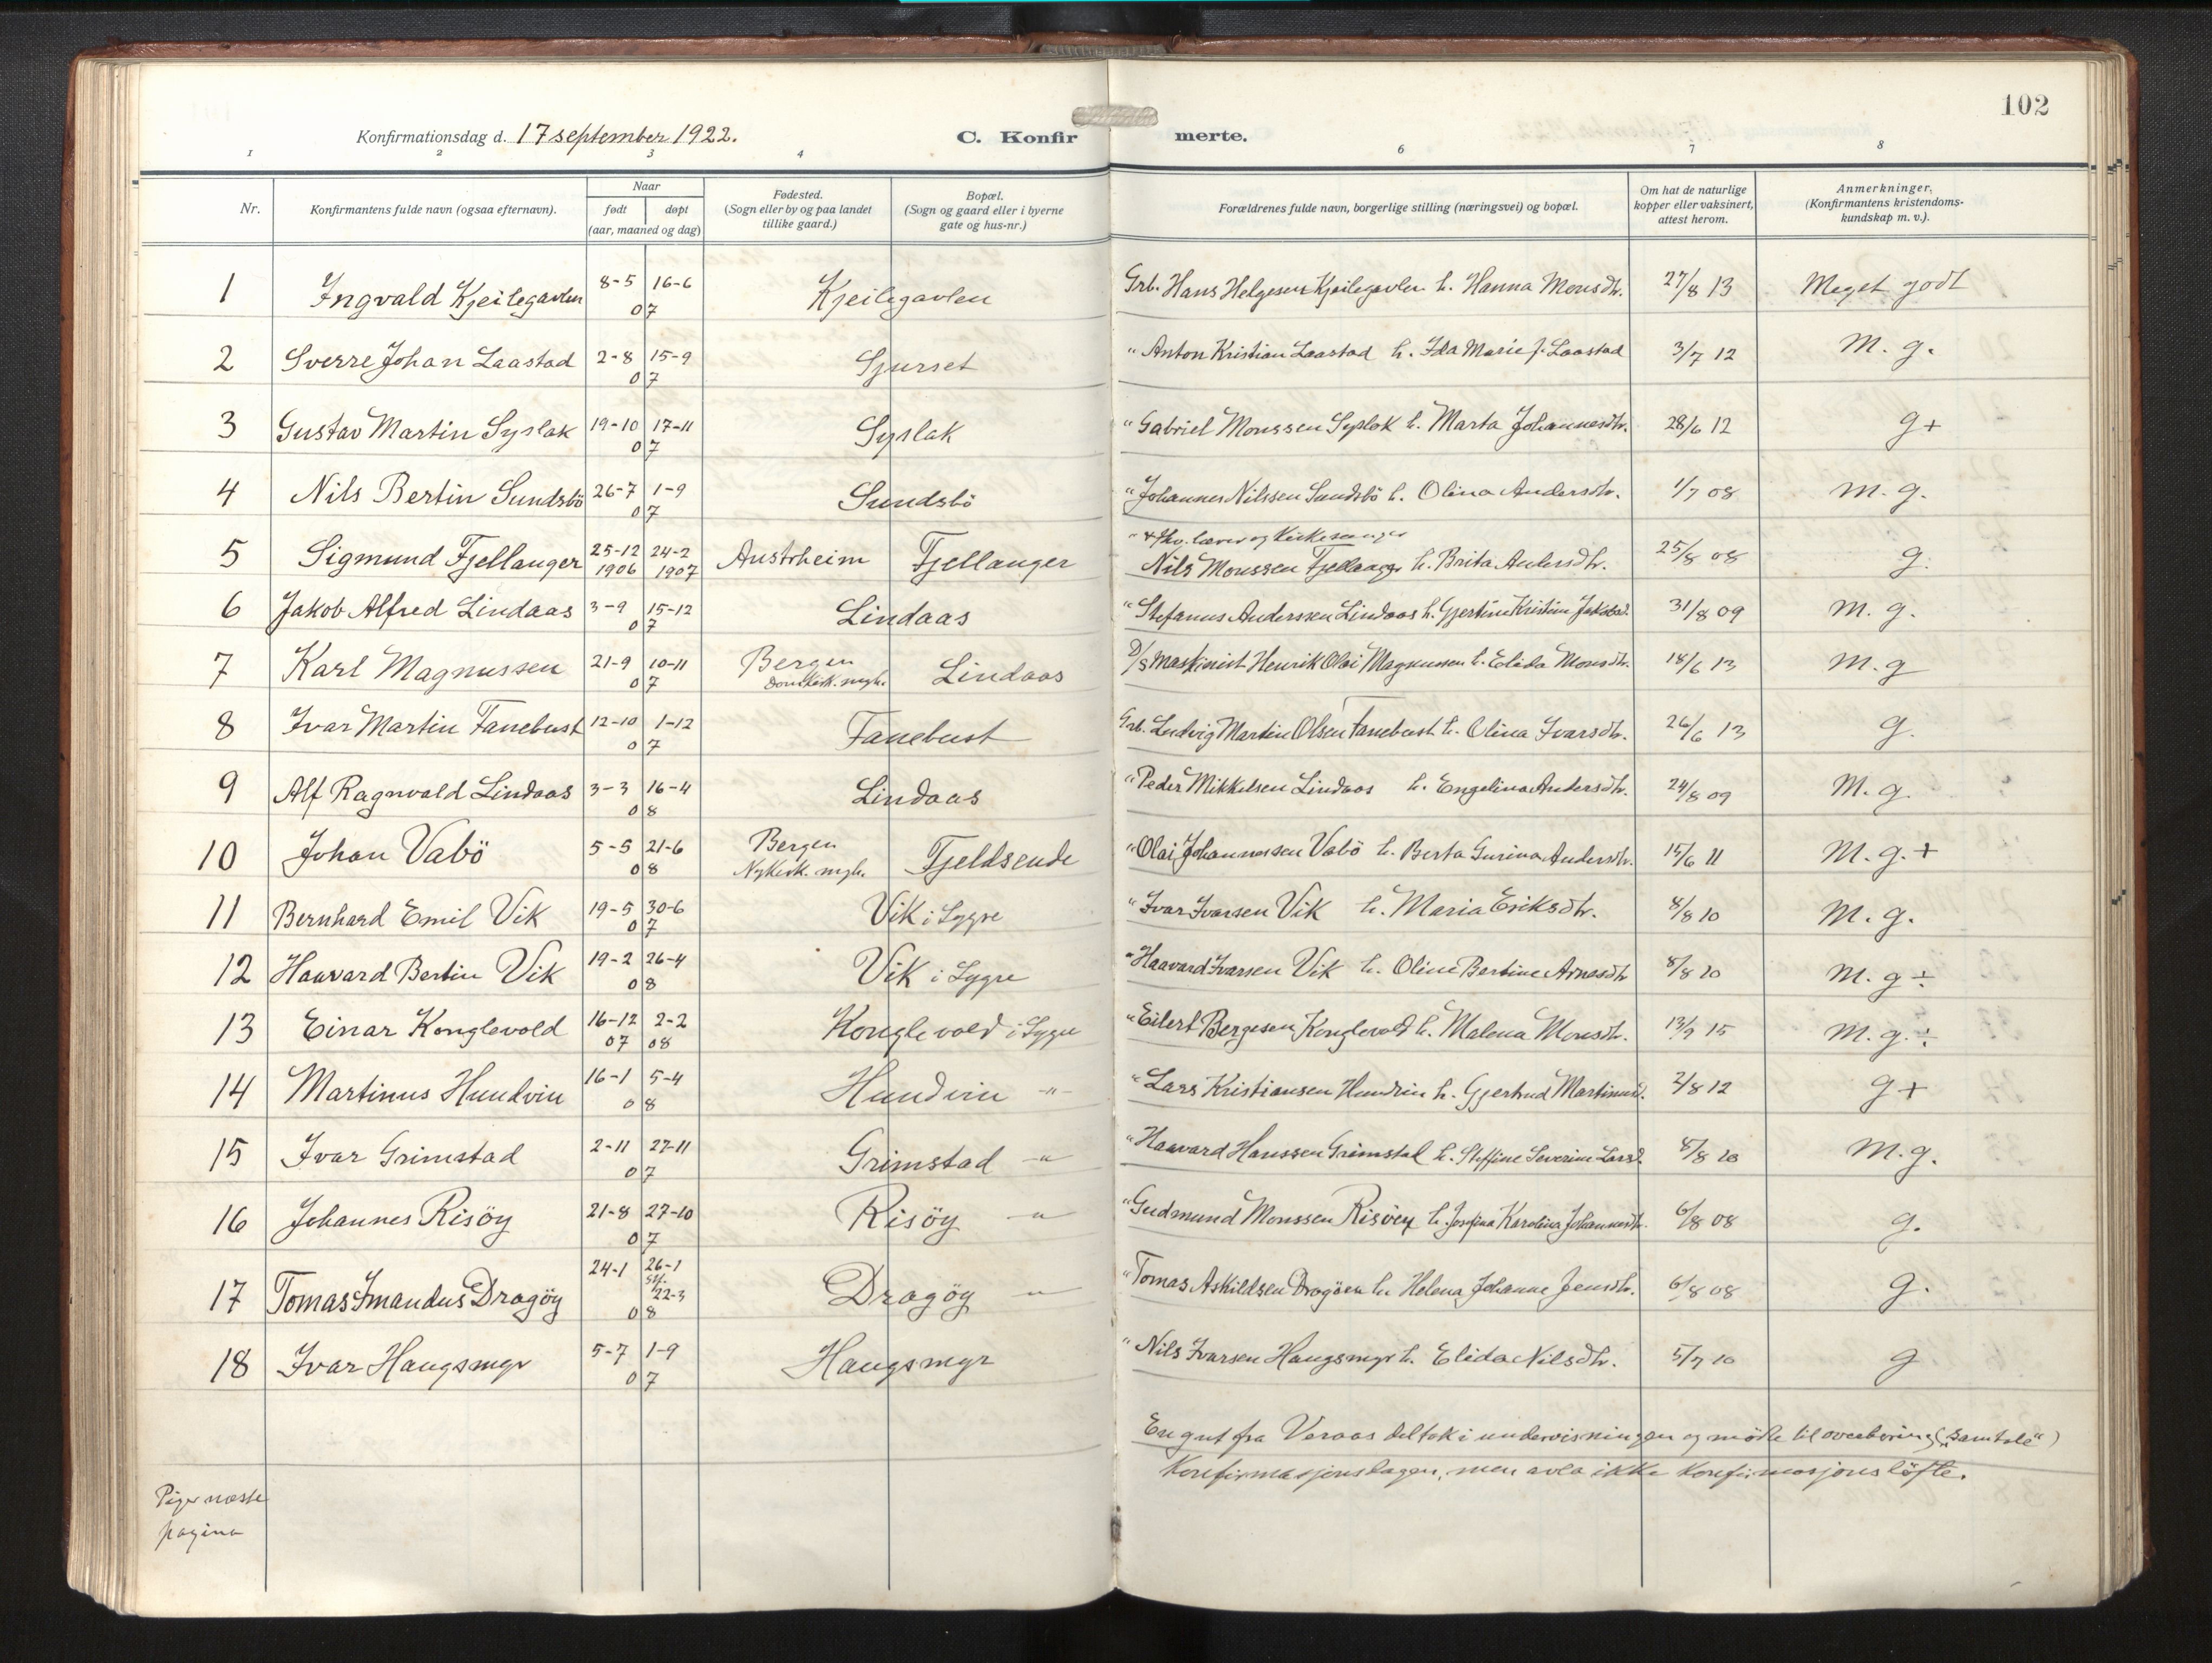 102
Konfirmationsdag d. 17 september 1922. C. Konfirmerte.
1 2 3 4 6 7 8
Nr. Konfirmantens fulde navn (ogsaa efternavn). Naar født døpt (aar, maaned og dag) Fødested. (Sogn eller by og paa landet tillike gaard.) Bopæl. (Sogn og gaard eller i byerne gate og hus-nr.) Forældrenes fulde navn, borgerlige stilling (næringsvei) og bopæl. Om hat de naturlige kopper eller vaksinert, attest herom. Anmerkninger, (Konfirmantens kristendomskundskap m. v.).
1 Ingvald Kjeilegavlen 8-5 16-6 07 Kjeilegavlen Grb. Hans Helgesen Kjeilegavlen h. Hanna Monsdtr. 27/8 13 Meget godt
2 Sverre Johan Laastad 2-8 15-9 07 Sjurset " Anton Kristian Laastad h. Ida Marie J. Laastad 3/7 12 M. g.
3 Gustav Martin Syslak 19-10 17-11 07 Syslak " Gabriel Monssen Syslak h. Marta Johannesdtr. 28/6 12 g+
4 Nils Bertin Sundsbö 26-7 1-9 07 Sundsbö " Johannes Nilssen Sundsbö h. Olina Andersdtr. 1/7 08 M. g.
5 Sigmund Fjellanger 25-12 1906 24-2 1907 Austrheim Fjellanger " lærer og Kirkesanger
Nils Monssen Fjellanger h. Brita Andersdtr. 25/8 08 g.
6 Jakob Alfred Lindaas 3-9 15-12 07 Lindaas " Stefanus Anderssen Lindaas h. Gjertine Kristine Jakobsd. 31/8 09 M. g.
7 Karl Magnussen 21-9 10-11 07 Bergen Domkirk. mgh. Lindaas D/S Maskinist Henrik Olai Magnussen h. Elida Monsdtr. 18/6 13 M. g
8 Ivar Martin Fanebust 12-10 1-12 07 Fanebust Grb. Ludvig Martin Olsen Fanebust h. Olina Ivarsdtr. 26/6 13 g.
9 Alf Ragnvald Lindaas 3-3 16-4 08 Lindaas " Peder Mikkelsen Lindaas h. Engelina Andersdtr. 24/8 09 M. g.
10 Johan Vabö 5-5 21-6 08 Bergen Nykirk. mgh. Fjeldsende " Olai Johannessen Vabö h. Berta Gurina Andersdtr. 15/6 11 M. g. +
11 Bernhard Emil Vik 19-5 30-6 07 Vik i Lygre " Ivar Ivarsen Vik h. Maria Eriksdtr. 8/8 10 M. g.
12 Haavard Bertin Vik 19-2 26-4 08 Vik i Lygre " Haavard Ivarsen Vik h. Oline Bertine Arnesdtr 8/8 10 M. g ÷
13 Einar Konglevold 16-12 07 2-2 08 Konglevold i Lygre " Eilert Bergesen Konglevold h. Malena Monsdtr. 13/9 15 M. g. ÷
14 Martinus Hundvin 16-1 5-4 08 Hundvin -"- " Lars Kristiansen Hundvin h. Gjertrud Martinusd. 2/8 12 g +
15 Ivar Grimstad 2-11 27-11 07 Grimstad -"- " Haavard Hanssen Grimstad h. Steffine Severine Larsd. 8/8 10 M. g.
16 Johannes Risöy 21-8 27-10 07 Risöy -"- " Gudmund Monssen Risöey h. Josefina Karolina Johannesdtr. 6/8 08 g.
17 Tomas Imandus Dragöy 24-1 26-1 st. 22-3 08 Dragöy -"- " Tomas Askildsen Dragöen h. Helena Johanne Jensdtr. 6/8 08 g.
18 Ivar Haugsmyr 5-7 1-9 07 Haugsmyr " Nils Ivarsen Haugsmyr h. Elida Nilsdtr. 5/7 10 g
En gut fra Veraas deltok i undervisningen og møtte til overhøring ("Samtale")
Konfirmasjonsdagen, men avla ikke Konfirmasjonsløfte.
Piger næste
pagina